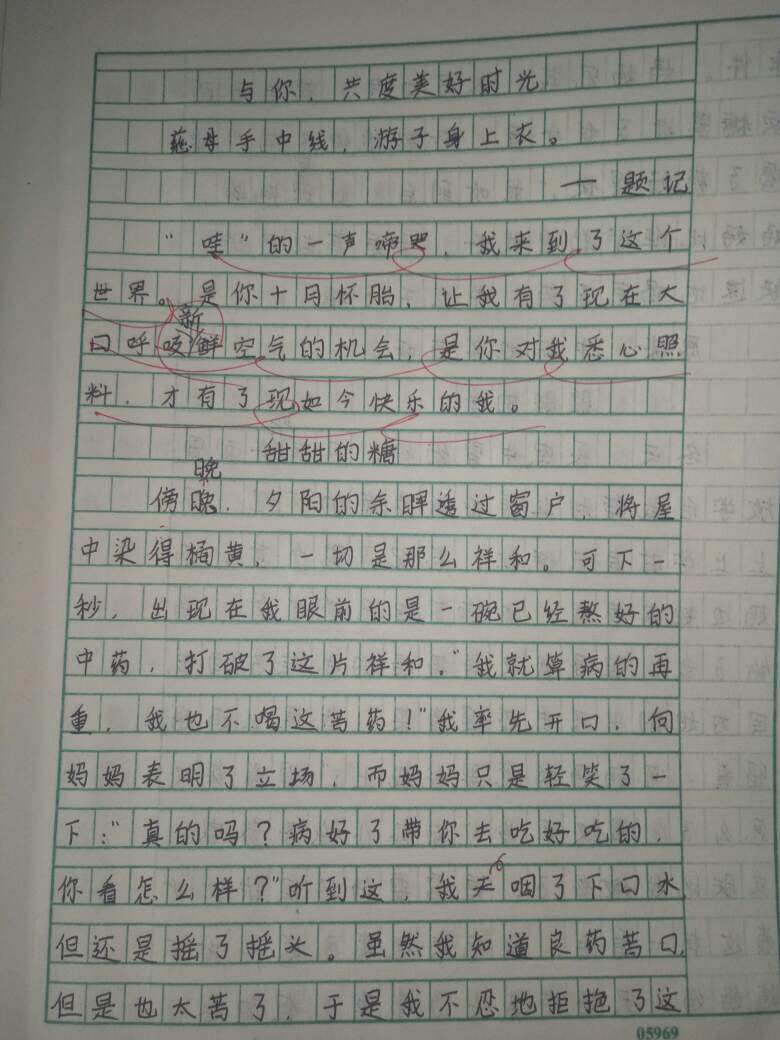 与你，共度美好时光
慈母手中线，游子身上衣。
——题记
“哇”的一声啼哭，我来到了这个
世界。是你十月怀胎，让我有了现在大
新
口呼吸鲜空气的机会，是你对我悉心照
料，才有了现如今快乐的我。
甜甜的糖
晚
傍晚，夕阳的余晖透过窗户，将屋
中染得橘黄，一切是那么祥和。可下一
秒，出现在我眼前的是一碗已经熬好的
中药，打破了这片祥和。“我就算病的再
重，我也不喝这苦药！”我率先开口，向
妈妈表明了立场，而妈妈只是轻笑了一
下：“真的吗？病好了带你去吃好吃的，
你看怎么样？”听到这，我咽了下口水
但还是摇了摇头。虽然我知道良药苦口
但是也太苦了，于是我不忍地拒抱了这
05969